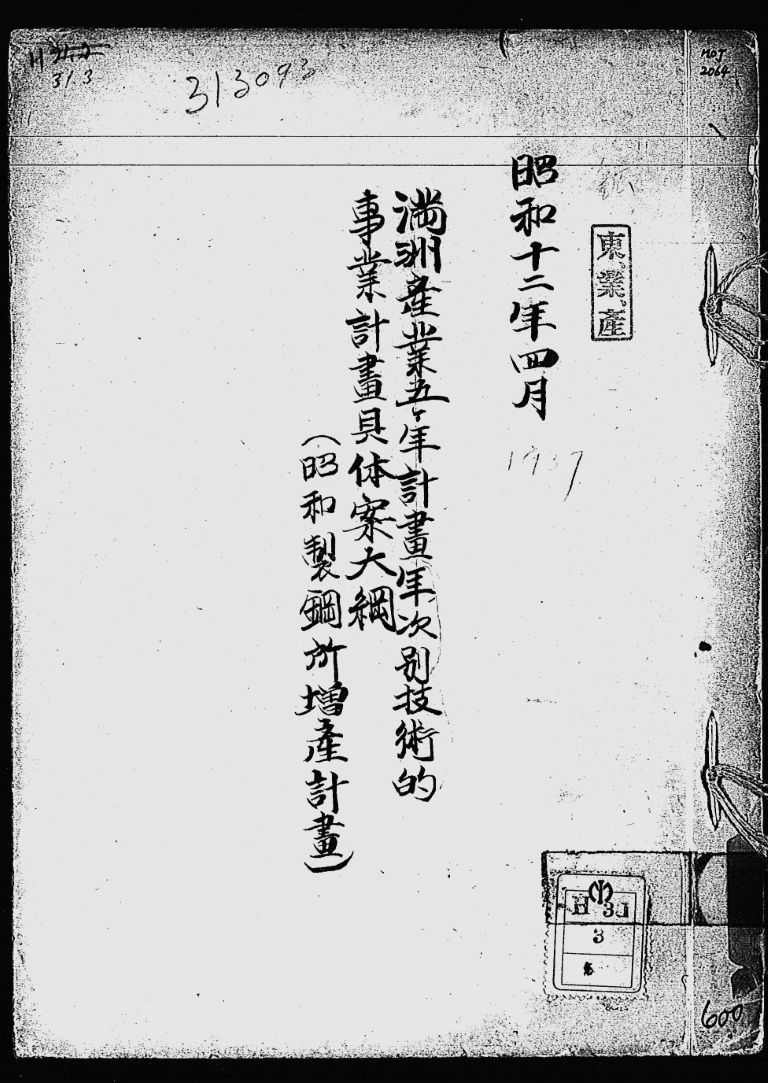 H 31.3
313093
MOJ
2064
東業産
昭和十二年四月
1937
満洲産業五ケ年計畫年次別技術的
事業計畫具体案大綱
（昭和製鋼所増産計畫）
H 31
3
600